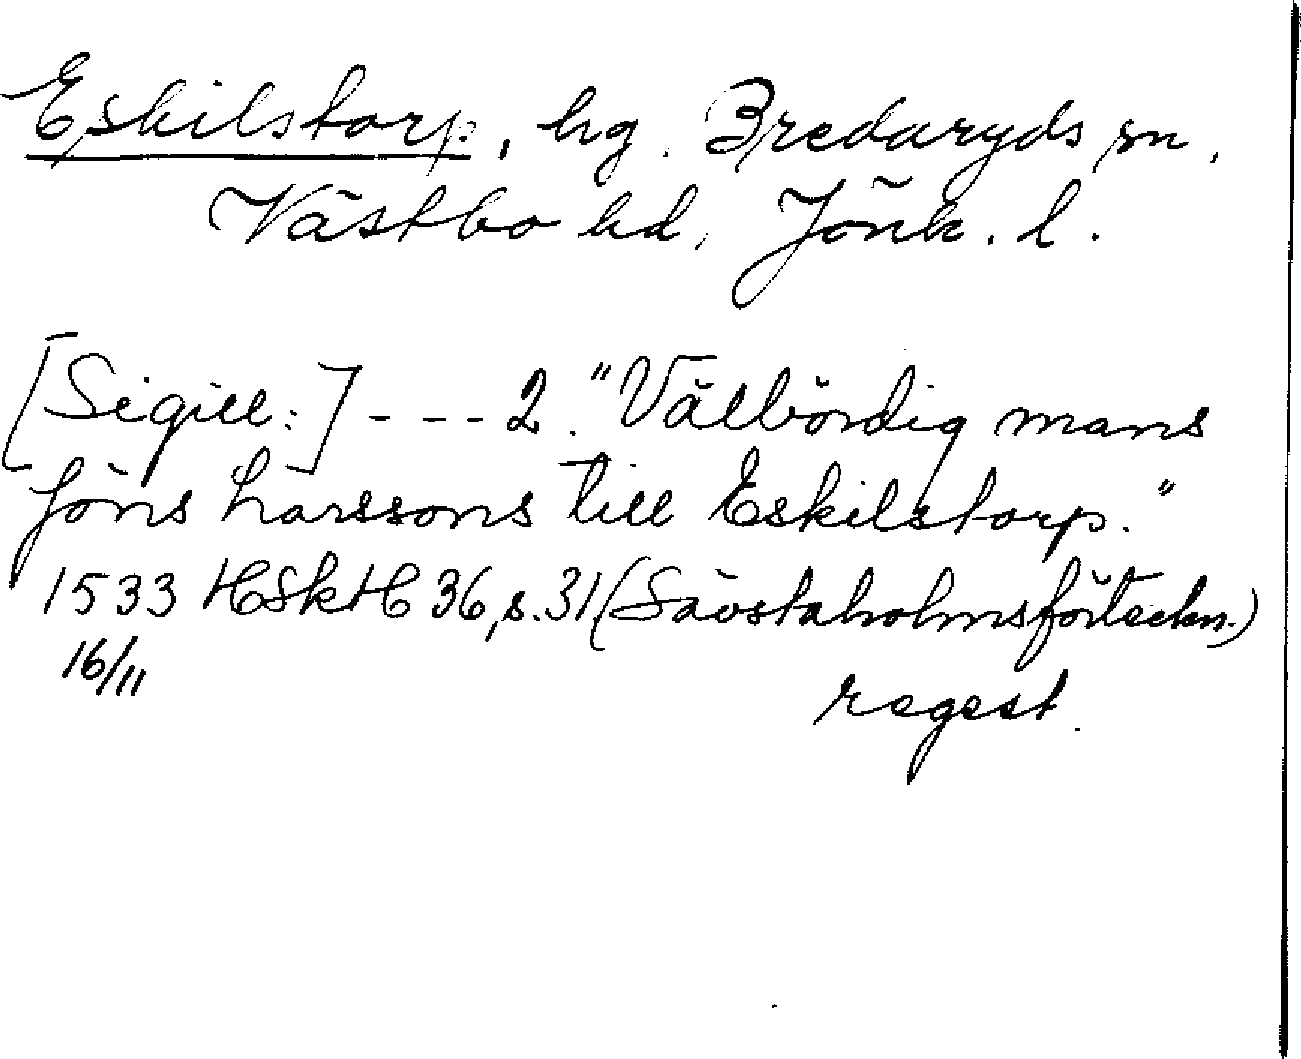 Eskilstorp, hg. Bredaryds sn,
Västbo hd, Jönk. l.
[Sigill:] - - - 2. "Välbördig mans
Jöns Larssons till Eskilstorp."
1533 HSkH 36, s. 31 (Sävstaholmsförteckn.)
16/11
regest.